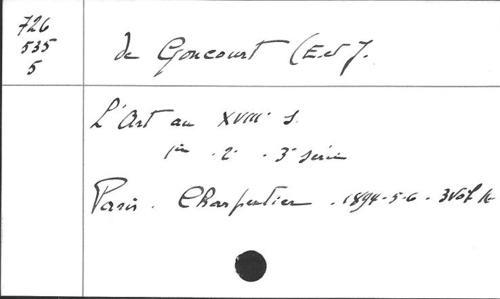 726
535
5
de Goncourt (E et J.
L'Art au XVIII s.
1ère . 2e . 3e série
Paris . Charpentier . 1894-5-6 . 3 Vol